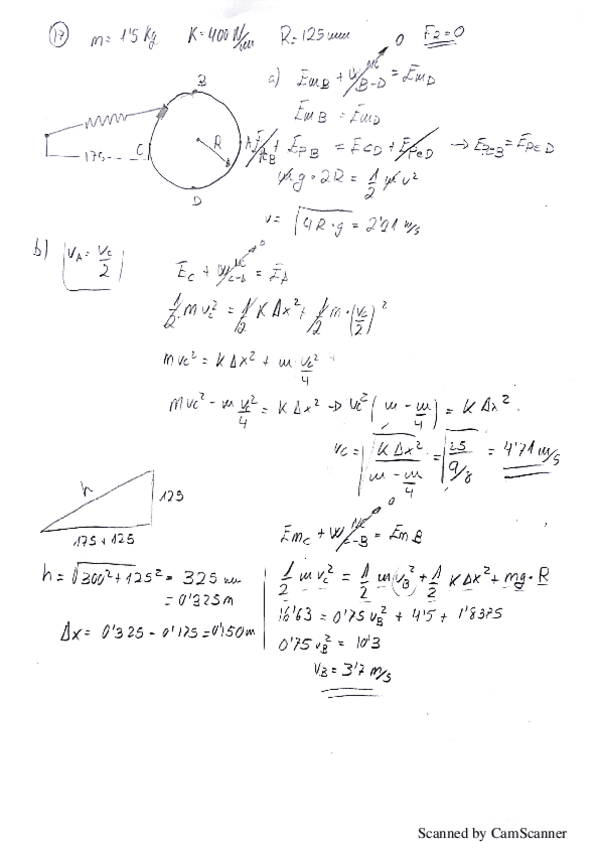 17 m= 1'5 kg K=400 N/m R=125 mm F2=0
a) EmB + W B-D = EmD
0
EmB = EmD
B
EPB = ECD + EPeD → EPeB = EPeD
175
C
R
A
D
mg·2R = 1/2 mv²
v= √4R·g = 2'21 m/s
b) VA = Vc/2
Ec + W C-A = EA
0
1/2 m vc² = 1/2 K Δx² + 1/2 m·(vc/2)²
m vc² = K Δx² + m vc²/4
m vc² - m vc²/4 = K Δx² → vc² (m - m/4) = K Δx²
vc = √(K Δx² / (m - m/4)) = √(25 / 9/8) = 4'71 m/s
h
125
175 + 125
Emc + W C-B = EmB
0
h = √300² + 125² = 325 mm
= 0'325 m
Δx = 0'325 - 0'175 = 0'150 m
1/2 m vc² = 1/2 m (vB)² + 1/2 K Δx² + mg·R
16'63 = 0'75 vB² + 4'5 + 1'8375
0'75 vB² = 10'3
vB = 3'7 m/s
Scanned by CamScanner